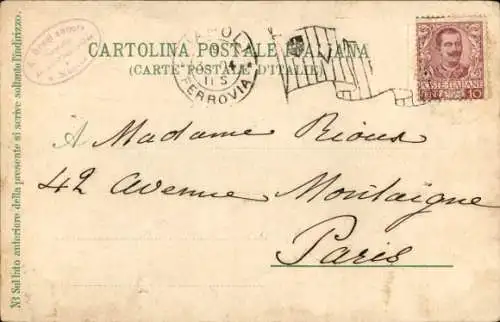 CARTOLINA POSTALE ITALIANA
(CARTE POSTALE D'ITALIE)
NAPOLI
FERROVIA
POSTE ITALIANE
10
A Madame Rious
42 Avenue Montaigne
Paris
NB Sul lato anteriore della presente si scrive soltanto l'indirizzo.